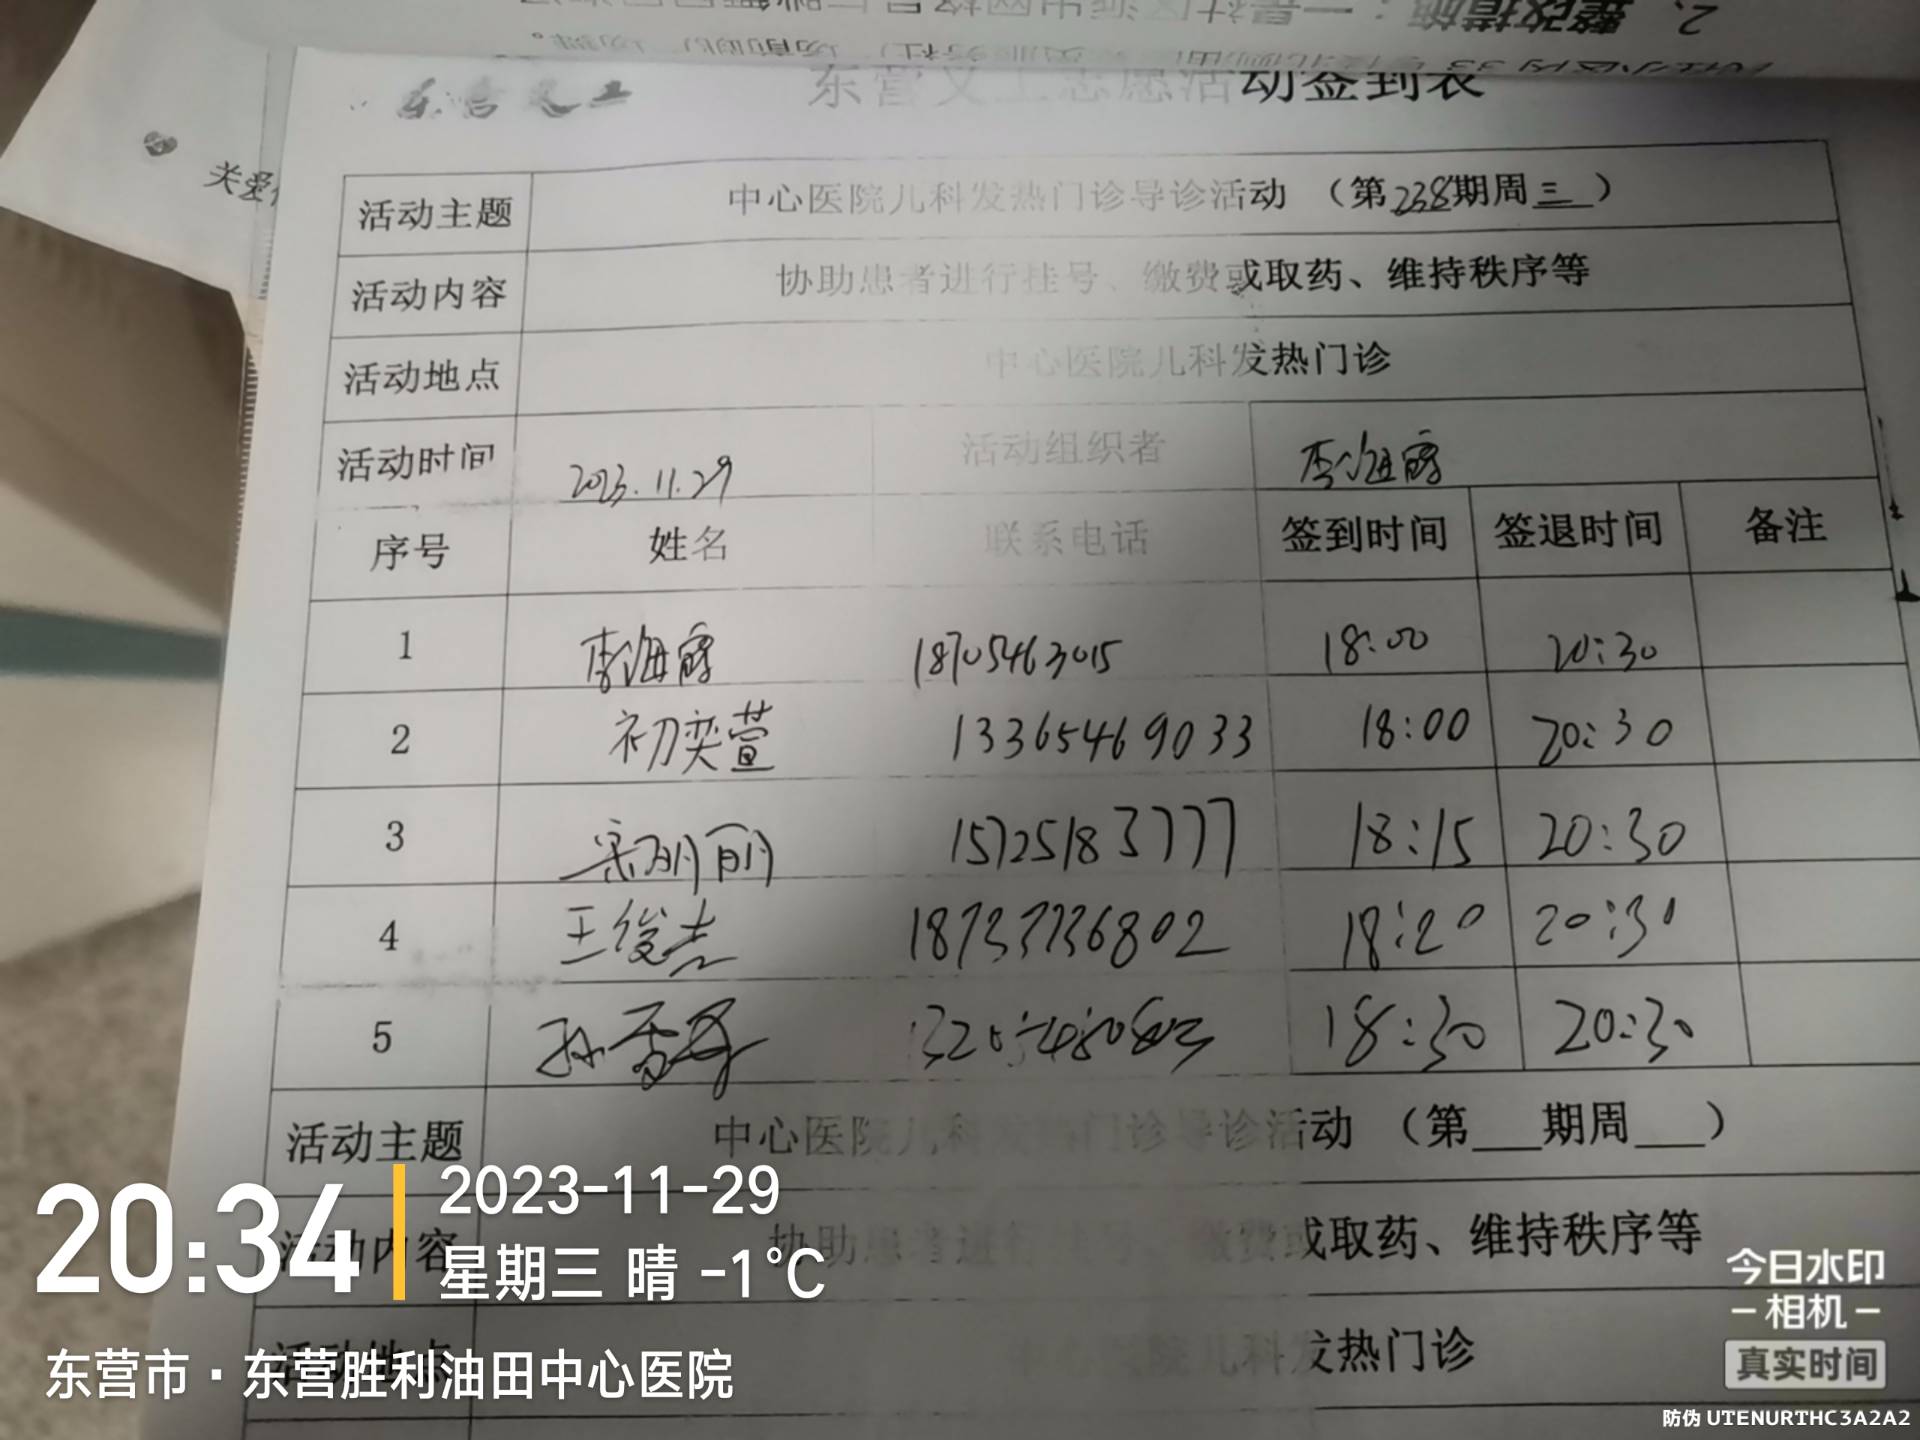 2、整改措施：一是社区
关爱
东营义工
东营义工志愿活动签到表
活动主题 中心医院儿科发热门诊导诊活动 （第238期周三）
活动内容 协助患者进行挂号、缴费或取药、维持秩序等
活动地点 中心医院儿科发热门诊
活动时间 2023.11.29 活动组织者 李海霞
序号 姓名 联系电话 签到时间 签退时间 备注
1 李海霞 18705463015 18:00 20:30
2 初奕萱 13365469033 18:00 20:30
3 宋丽丽 15725183777 18:15 20:30
4 王俊志 18737736802 18:20 20:30
5 孙 18:30 20:30
活动主题 中心医院儿科发热门诊导诊活动 （第___期周___）
活动内容 协助患者进行挂号、缴费或取药、维持秩序等
活动地点 中心医院儿科发热门诊
20:34
2023-11-29
星期三 晴 -1℃
东营市·东营胜利油田中心医院
今日水印
相机
真实时间
防伪 UTENURTHC3A2A2